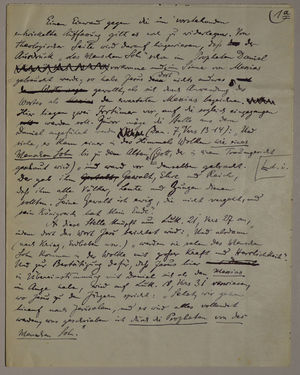 1a
Einen Einwand gegen die im vorstehenden
entwickelte Auffassung gilt es noch zu widerlegen. Von
theologischer Seite wird darauf hingewiesen, daß der
Ausdruck „des Menschen Sohn" im Propheten Daniel
im Sinne von Messias
gebraucht werde, so habe Jesus dort nichts anderes
als mit der Anwendung des
Wortes als den erwarteten Messias bezeichnen
Hier liegen zwei Irrtümer vor, auf die sogleich eingegangen
werden soll. Zum die Stelle aus dem
Daniel angeführt (Dan. 7, Vers 13-14): „Und
siehe, es kam einer in des Himmels Wolken wie eines
Menschen Sohn bis zu dem Alten (Gott, der in einem Traumgesicht
geschaut wird) und ward vor denselben gebracht.
Der gab ihm Gewalt, Ehre und Reich,
daß ihm alle Völker, Leute und Zungen dienen
sollten. Seine Gewalt ist ewig, die nicht vergeht, und
sein Königreich hat kein Ende."
An diese Stelle knüpft nun Luk. 21, Vers 27 an,
indem dort das Wort Jesu berichtet wird: „Und alsdann
(nach Krieg, Erdbeben usw.) werden sie sehen des Menschen
Sohn kommen in der Wolke mit großer Kraft und Herrlichkeit."
Und zur Bestätigung dafür, daß Jesus hier
in Übereinstimmung mit Daniel sich als den Messias
im Auge habe, wird auf Luk. 18, Vers 31 verwiesen,
wo Jesus zu den Jüngern spricht: „Sehet, wir gehen
hinauf nach Jerusalem, und es wird alles vollendet
werden, was geschrieben ist durch die Propheten von des
Menschen Sohn."